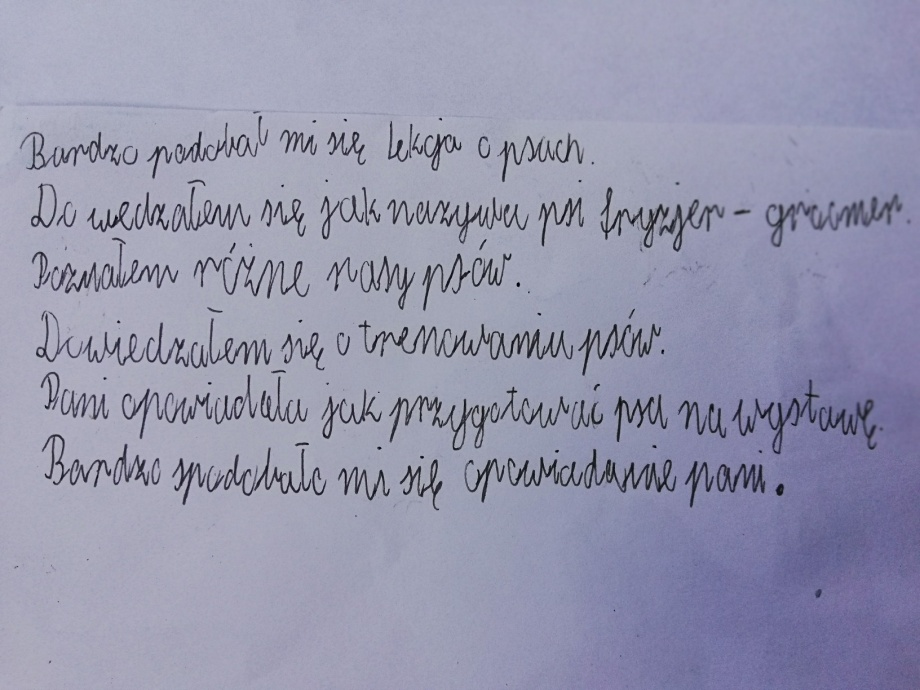 Bardzo podobał mi się lekcja o psach.
Do wedzałem się jak nazywa psi fryzjer - groomer.
Poznałem różne rasy psów.
Dowiedzałem się o trenowaniu psów.
Pani opowiadała jak przygotować psa na wystawę.
Bardzo spodobało mi się opowiadanie pani.